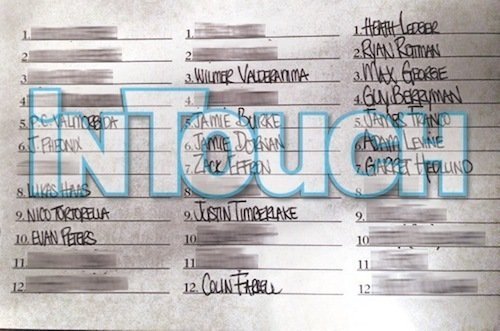 1.
2.
3.
4
5 P.C. VALMORBIDA
6 J. PHEONIX
7
8 LUKAS HAAS
9. NICO TORTORELLA
10. EVAN PETERS
11
12
1.
2.
3. WILMER VALDERAMMA
4
5. JAMIE BURKE
6. JAMIE DORNAN
7. ZACK EFFRON
8
9. JUSTIN TIMBERLAKE
10.
11.
12. COLIN FARRELL
1. HEATH LEDGER
2. RYAN ROTTMAN
3. MAX GEORGE
4. GUY BERRYMAN
5. JAMES FRANCO
6. ADAM LEVINE
7. GARRET HEDLUND
8
9.
10
11
12
InTouch